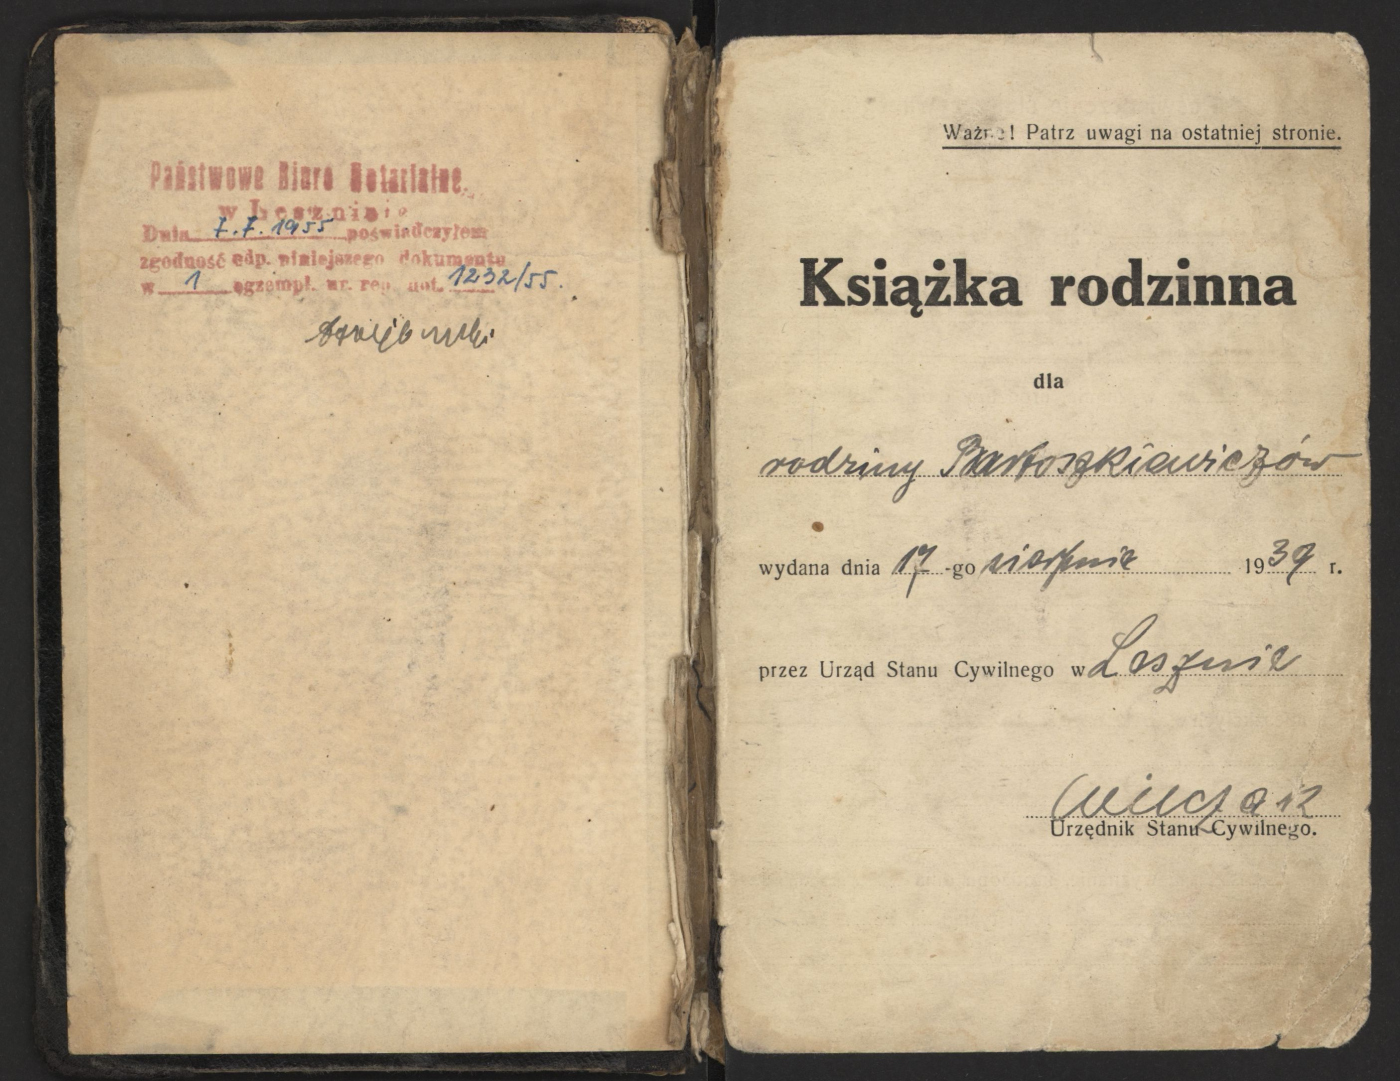 Państwowe Biuro Notarialne
w Lesznie
Dnia 7.7.1955 poświadczyłem
zgodność odp. niniejszego dokumentu
w 1 egzempl. nr. rep. not. 1232/55.
Ważne! Patrz uwagi na ostatniej stronie.
Książka rodzinna
dla
rodziny Bartoszkiewiczów
wydana dnia 17-go sierpnia 1939 r.
przez Urząd Stanu Cywilnego w Lesznie
Urzędnik Stanu Cywilnego.